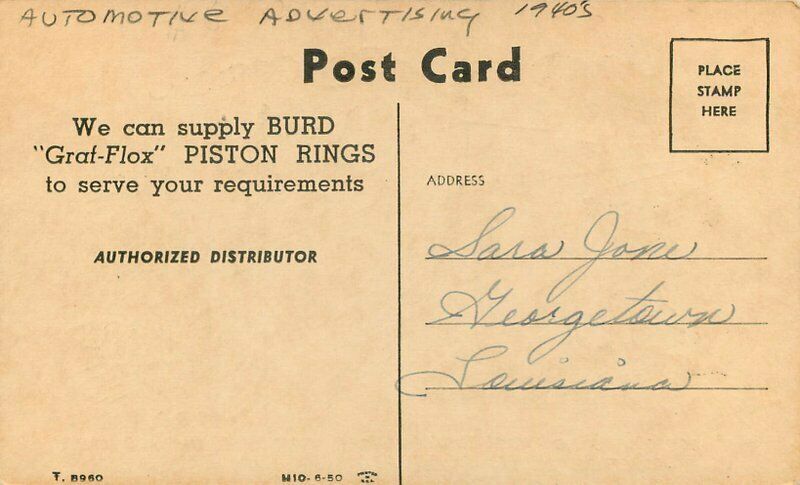 AUTOMOTIVE ADVERTISING 1940's
Post Card
PLACE
STAMP
HERE
We can supply BURD
"Graf-Flox" PISTON RINGS
to serve your requirements
AUTHORIZED DISTRIBUTOR
ADDRESS
Sara Jane
Georgetown
Louisiana
T. 8960
M10-6-50